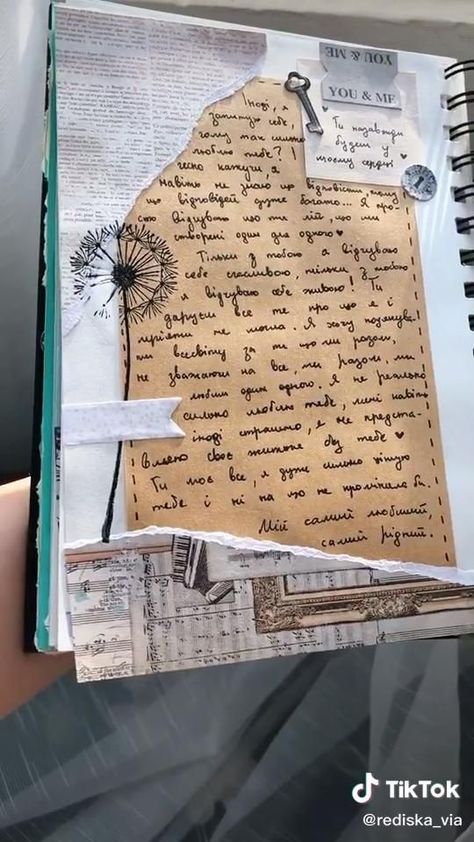 YOU & ME
YOU & ME
Ти назавжди
будеш у
моєму серці
Іноді, я
запитую себе,
чому так сильно
люблю тебе?
чесно кажучи, я
навіть не знаю що відповісти, тому
що відповідей дуже багато... Я про-
сто відчуваю що ти мій, що ми
створені один для одного
Тільки з тобою я відчуваю
себе щасливою, тільки з тобою
я відчуваю себе живою! Ти
даруєш все те про що я і
мріяти не могла. Я хочу
всесвіту за те що ми разом,
не зважаючи на все, ми разом, ми
любим один одного. Я не реально
сильно люблю тебе, мені навіть
іноді страшно, я не предста-
вляю своє життя без тебе
Ти моє все, я дуже сильно ціную
тебе і ні на що не проміняла б.
Мій самий любіший,
самий рідний.
TikTok
@rediska_via